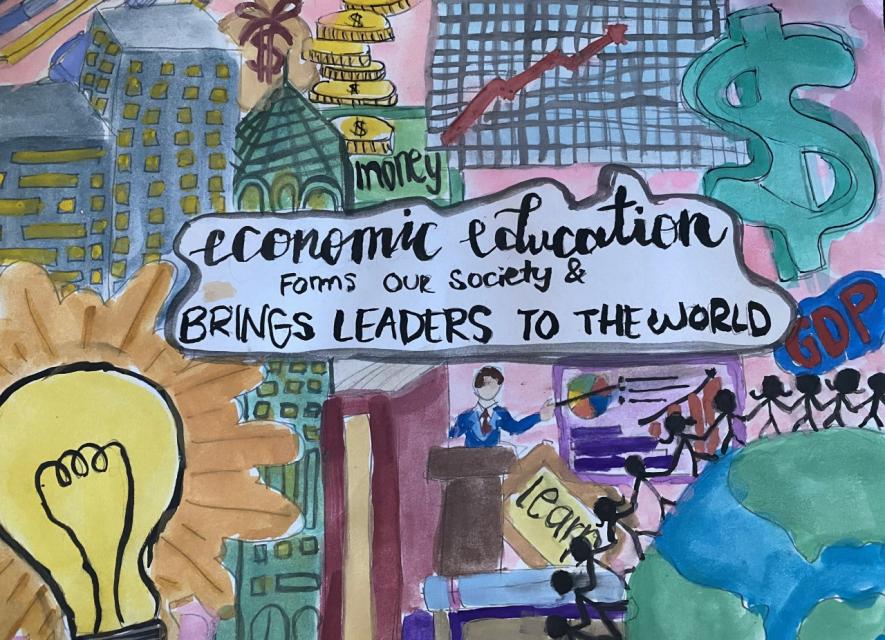 $
$
$
$
$
money
$
economic education
Forms our society &
BRINGS LEADERS TO THE WORLD
GDP
Learn